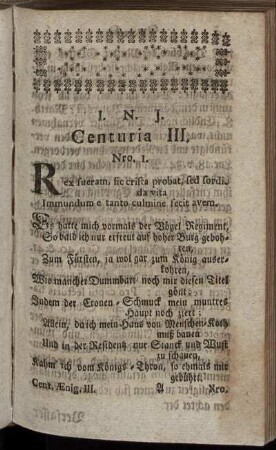 I. N. J.
Centuria III.
Nro. I.
Rex fueram, sic crista probat, sed sordi-
da vita
Immundum e tanto culmine fecit avem.
Es hatte mich vormals der Vögel Regiment,
So bald ich nur erfreut auf hoher Burg geboh-
ren,
Zum Fürsten, ja wol gar zum König auser-
kohren,
Wie mancher Dummbart noch mir diesen Titel
gönt:
Indem der Cronen-Schmuck mein muntres
Haupt noch ziert:
Allein, da ich mein Haus von Menschen-Koth
muß bauen
Und in der Residentz nur Stanck und Wust
zu schauen,
Kahm ich vom Königs-Thron, so ehmals mir
gebührt.
Cent. Ænig. III. A Nro.